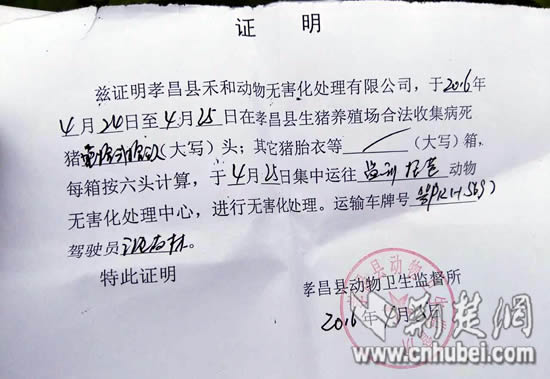 证 明
兹证明孝昌县禾和动物无害化处理有限公司，于2016年
4月24日至4月25日在孝昌县生猪养殖场合法收集病死
猪（大写）头；其它猪胚衣等（大写）箱，
每箱按六头计算，于4月25日集中运往 动物
无害化处理中心，进行无害化处理。运输车牌号
驾驶员。
特此证明
孝昌县动物卫生监督所
2016年 月 日
荆楚網
www.cnhubei.com